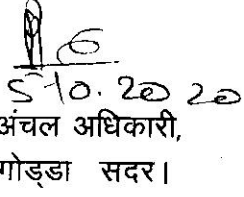 5-10.2020
अंचल अधिकारी,
गोड्डा सदर।